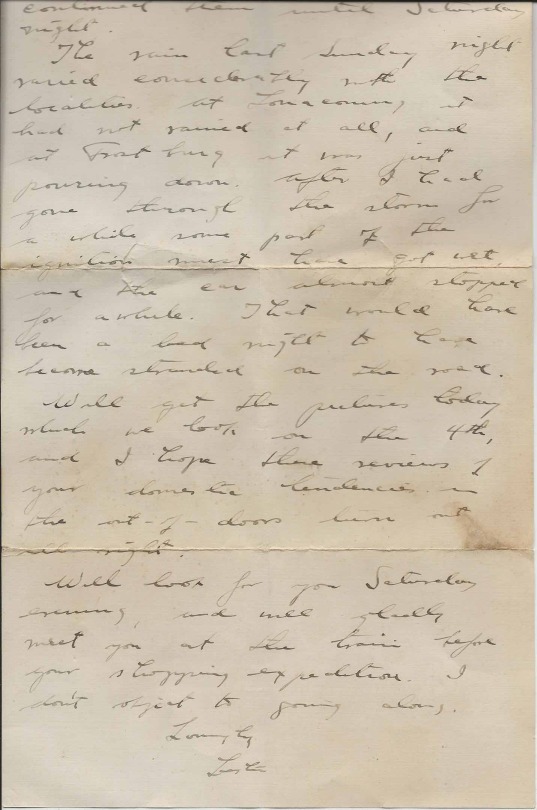 continued them until Saturday
night.
The rain last Sunday night
varied considerably with the
localities. At Lonaconing it
had not rained at all, and
at Frostburg it was just
pouring down. After I had
gone through the storm for
a while some part of the
ignition must have got wet,
and the car almost stopped
for awhile. That would have
been a bad night to have
become stranded on the road.
Will get the pictures today
which we took on the 4th,
and I hope these reviews of
your domestic tendencies in
the out-of-doors turn out
all right.
Will look for you Saturday
evening, and will gladly
meet you at the train before
your shopping expedition. I
don't object to going along.
Lovingly